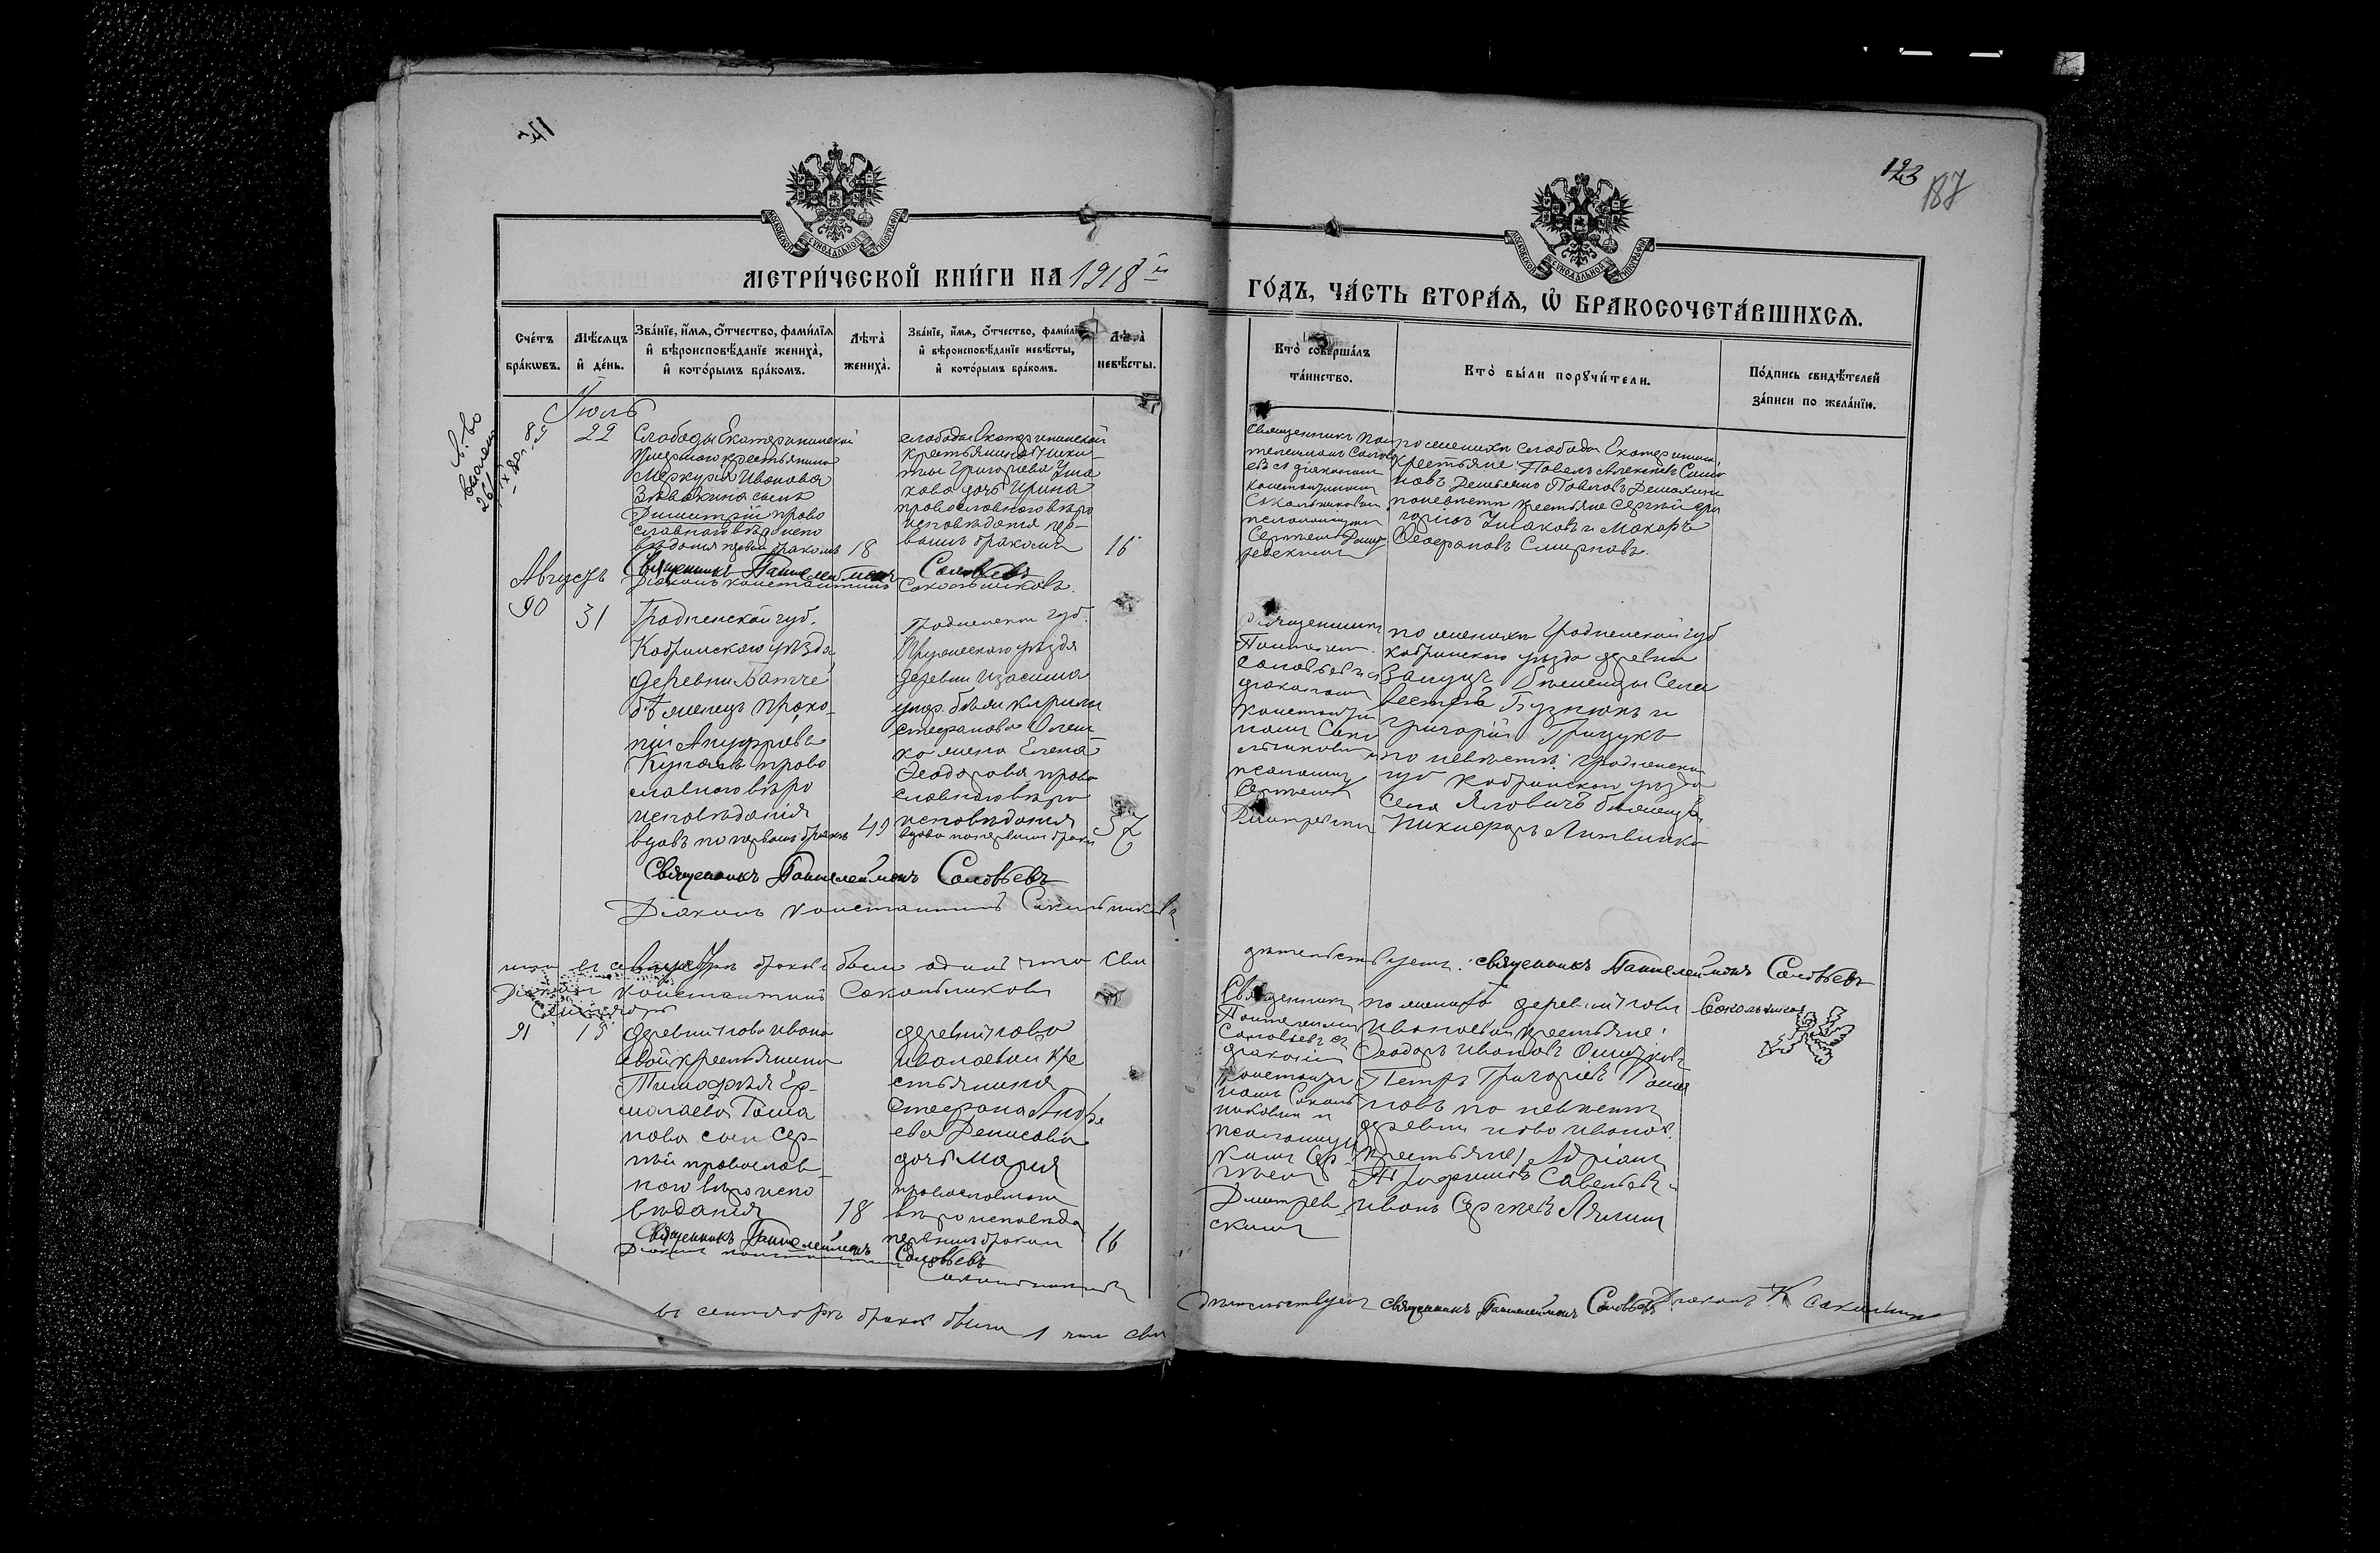 123
187
МЕТРИ́ЧЕСКОЙ КНИ́ГИ НА 1918 й
ГО́ДЪ, ЧА́СТЬ ВТОРА́Ѧ, Ѽ БРАКОСОЧЕТА́ВШИХСѦ.
МОСКОВСКОЙ СѴНОДАЛЬНОЙ ТИПОГРАФІИ
МОСКОВСКОЙ СѴНОДАЛЬНОЙ ТИПОГРАФІИ
Сче́тъ
бра́кѡвъ.
Мѣ́сѧцъ
и҆ де́нь.
Зва́нїе, и҆́мѧ, ѻ҆́тчество, фами́лїѧ
и҆ вѣроисповѣ́данїе жениха̀,
и҆ кото́рымъ бра́комъ.
Лѣ́та̀
жениха̀.
Зва́нїе, и҆́мѧ, ѻ҆́тчество, фами́лїѧ
и҆ вѣроисповѣ́данїе невѣ́сты,
и҆ кото́рымъ бра́комъ.
Лѣ́та̀
невѣ́сты.
Кто̀ соверша́лъ
та́инство.
Кто̀ бы́ли порꙋчи́тели.
По́дпись свидѣ́телей
за́писи по жела́нїю.
Іюль
89
22
Слободы Екатерининской
умершаго крестьянина
Меркурія Иванова
сынъ
Димитрій право
славнаго вѣроиспо
вѣданія первымъ бракомъ
18
слободы Екатерининской
крестьянина Ники-
ты Григорьева Уша
кова дочь Ирина
православнаго вѣро
исповѣданія пер-
вымъ бракомъ
16
Священникъ Пан
телеимонъ Соловь
евъ съ діакономъ
Константиномъ
Сокольниковымъ
псаломщикомъ
Сергѣемъ Дмит
ревскимъ
по женихѣ слободы Екатерининской
крестьяне: Павелъ Алексѣевъ
Павловъ
по невѣстѣ крестьяне Сергѣй Гри
горьевъ Ушаковъ и Макаръ
Ѳеофановъ Смирновъ.
Священникъ Пантелеймонъ Соловьевъ
Діаконъ Константинъ Сокольниковъ.
Августъ
90
31
Гродненской губ.
Кобринскаго уѣзда
деревни Батче
бѣженецъ Проко-
пій Ануфріевъ
право
славнаго вѣро
исповѣданія
вдовъ по первомъ бракѣ
49
Гродненской губ.
Пружанскаго уѣзда
деревни
умер. бѣжен. Кирилы
Стефанова
жена Елена
Ѳеодорова право
славнаго вѣро
исповѣданія
вдова по первомъ бракѣ
37
Священникъ
Соловьевъ съ
діакономъ
Константи
номъ Соко
льниковымъ и
псаломщ
Сергѣемъ
Дмитревскимъ
по женихѣ Гродненской губ
Кобринскаго уѣзда деревни
бѣженцы Силь
вестръ и
Григорій Грицукъ
по невѣстѣ: Гродненской
губ Кобринскаго уѣзда
села Яловичъ бѣженецъ
Никифоръ Литвинко
Священникъ Пантелеймонъ Соловьевъ
Діаконъ Константинъ Сокольниковъ
въ августѣ браковъ былъ одинъ что сви
дѣтельствуемъ: священникъ Пантелеймонъ Соловьевъ
Діаконъ Константинъ Сокольниковъ
Сентябрь
91
15
деревни Ново Ивано
вской крестьянина
Тимофѣя Ер-
молаева Рома
нова сынъ Сер-
гѣй православ-
наго вѣроиспо
вѣданія
18
деревни Ново
Ивановской кре
стьянина
Стефана Андре
ева Денисова
дочь Марія
православнаго
вѣроисповѣда
первымъ бракомъ
16
Священникъ
Пантелеимонъ
Соловьевъ съ
діакономъ
Константи
номъ Соколь
никовымъ и
псаломщи
комъ Сер-
гѣемъ
Дмитрев
скимъ
по женихѣ деревни Ново
Ивановской крестьяне:
Ѳеодоръ Ивановъ
Петръ Григорьевъ Рома
новъ по невѣстѣ
деревни Ново Иванов.
крестьяне, Адріанъ
Трофимовъ Савельевъ
Иванъ Сергѣевъ
Священникъ Пантелеймонъ Соловьевъ
Діаконъ Константинъ Сокольниковъ
въ сентябрѣ браковъ былъ 1 что сви
дѣтельствуемъ священникъ Пантелеймонъ Соловьевъ Діаконъ К Сокольник